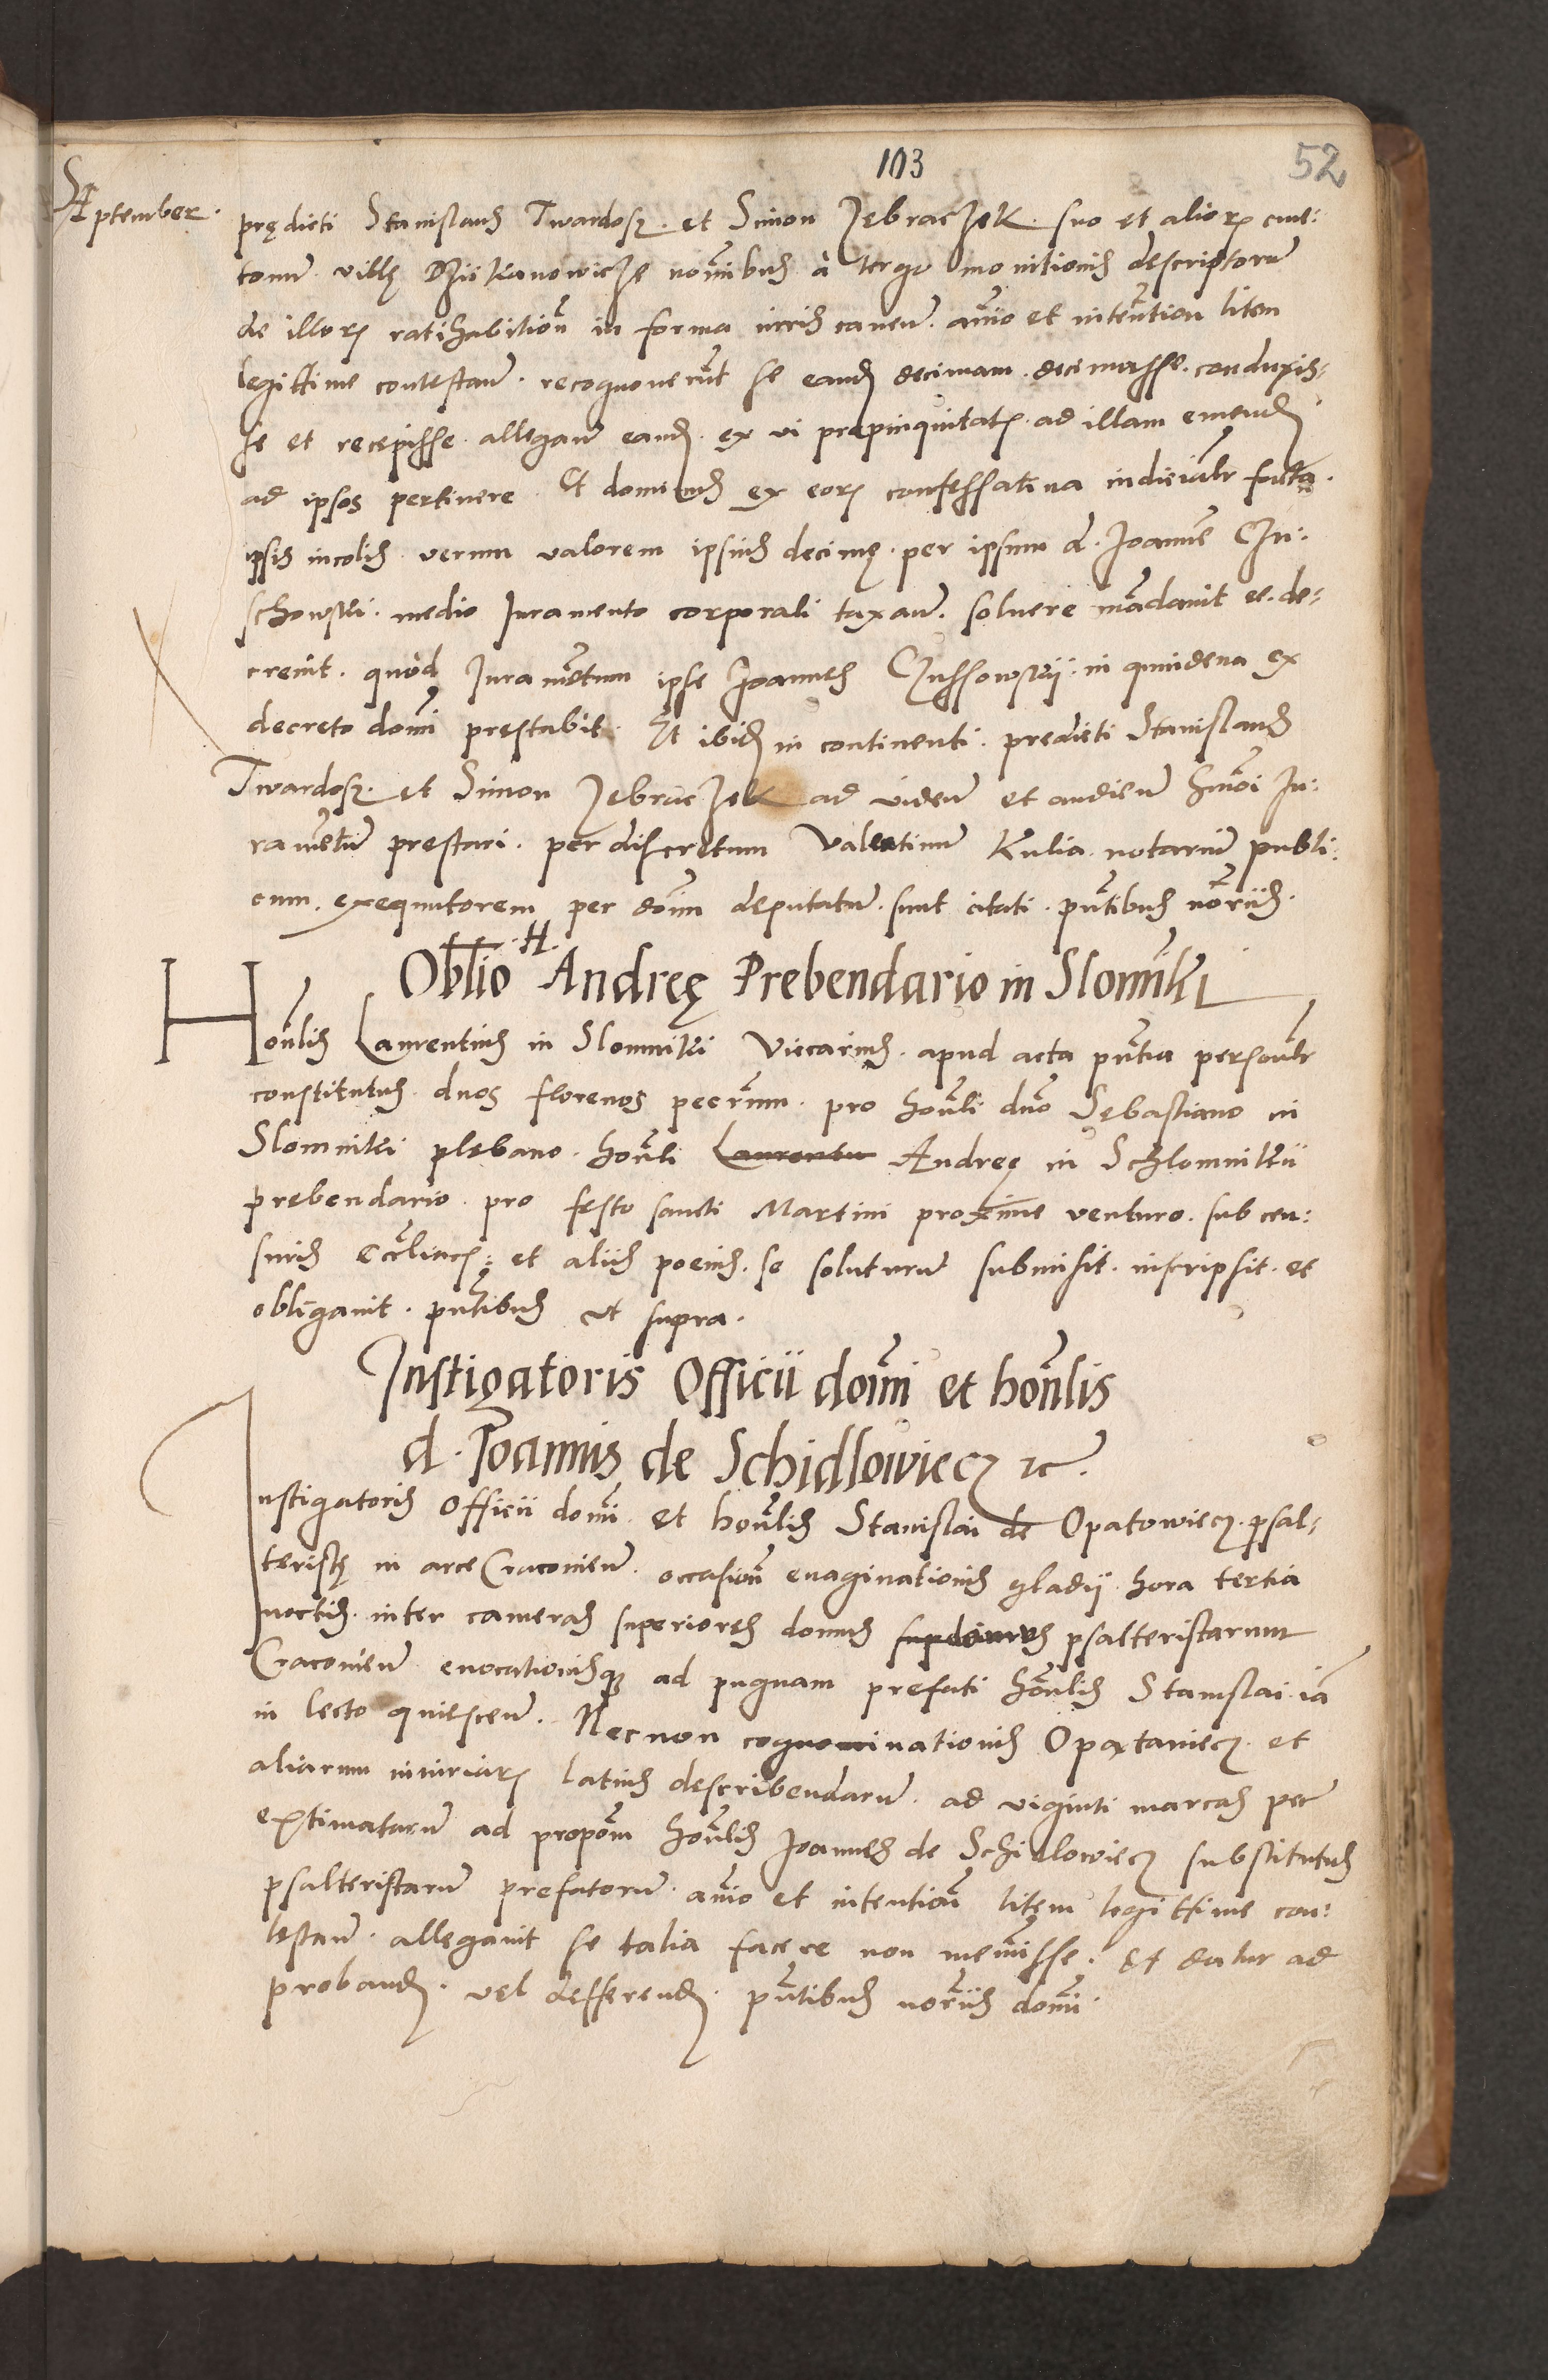 103
52
September.
prędicti Stanislaus Twardosz. et Simon Zebraczek. suo et aliorum cme:
tonum villę Dziekanowicze nominibus à tergo monitionis descriptorum
de illorum ratihabitionem in forma iuris cauen. animo et intention litem
legittime contestan. recognouerunt se eandem decimam. decimasse. conduxis:
se et recepisse. allegan eandem. ex vi propinquitatis. ad illam emendi
ad ipsos pertinere. Et dominus ex eorum confessatina iudicialr facta.
ipsis incolis. verum valorem ipsius decimę. per ipsum d. Joannem Czu:
schowski. medio Juramento corporali taxan. soluere mandauit ee. de:
creuit. quod Juramentum ipse Joannes Czussowskii. in quindena ex
decreto domini prestabit. Et ibidem in continenti. predicti Stanislaus
Twardosz. et Simon Zebraczek ad viden et audien humoi Ju:
ramentum prestari. per discretum Valentinum Kulia. notarium publi:
cum. exequutorem per doim deputatum. sunt citati. pntibus notariis.
Oblio H. Andreę Prebendario in Slomniki
Honlis Laurentius in Slomniki Viccarius. apud acta pntia personlr
constitutus. duos florenos pecuniarum. pro honli dno Sebastiano in
Slomniki plebano. honli Laurentii Andreę in Schlomnikii
prebendario. pro festo sancti Martini proxime venturo. sub cen:
suris Eccliacis: et aliis poenis. se soluturum submisit. inscripsit. et
obligauit. pntibus ut supra.
Instigatoris Officii domini et honlis
d. Joannis de Schidlowiecz etc.
Instigatoris officii domini. et honlis Stanislai de Opatowiecz. psal:
teristę in arce Cracouien. occasione euaginationis gladii. hora tertia
noctis. inter cameras superiores domus psalteristarum
Cracouien euocationisque ad pugnam prefati honlis Stanislai. iam
in lecto quiescen. Necnon cognominationis Opaxtaniecz. et
aliarum iniuriarum latius describendarum. ad viginti marcas per
extimatarum ad propom honlis Joannes de Schidlowiecz substitutus
psalteristarum prefatorum. animo et intention litem legittime con:
testan. allegauit se talia facere non meminisse. Et datur ad
probandum. vel defferendum. pntibus notariis domini.